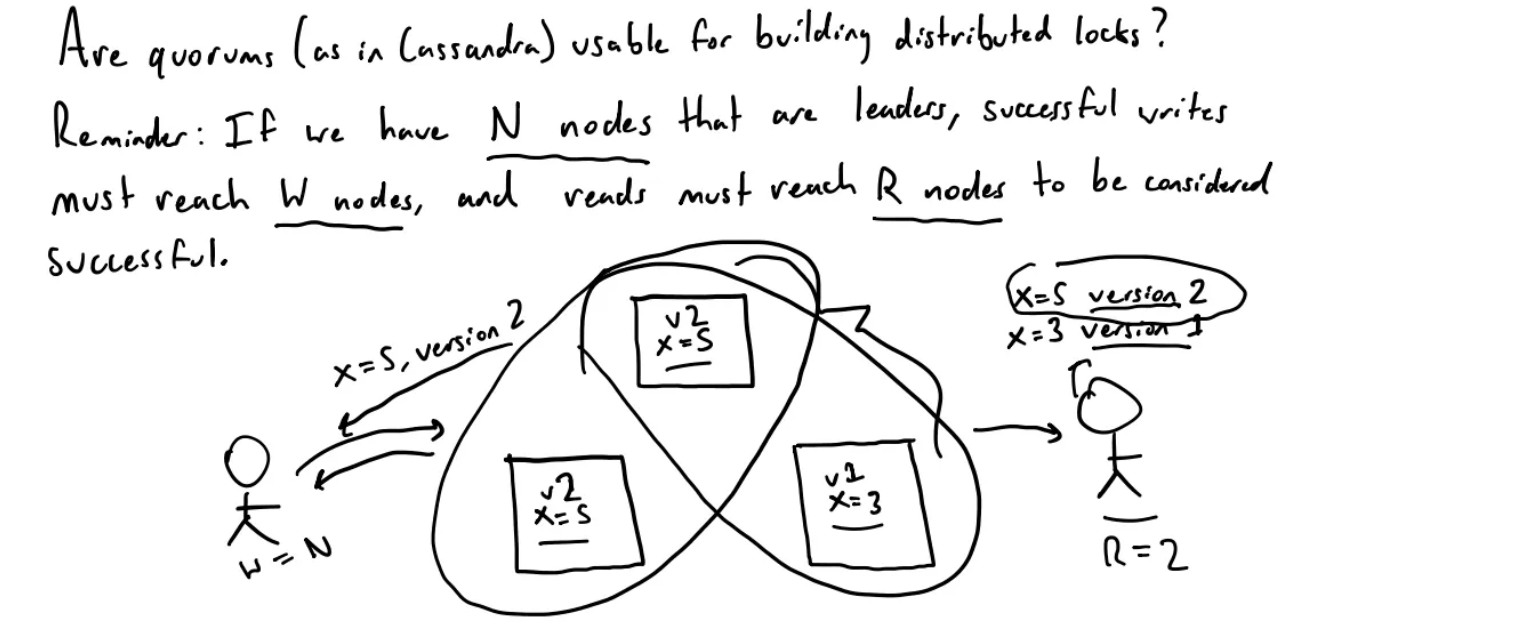 Are quorums (as in Cassandra) usable for building distributed locks?
Reminder: If we have N nodes that are leaders, successful writes
must reach W nodes, and reads must reach R nodes to be considered
successful.
x=5 version 2
x=3 version 1
x=5, version 2
v2
x=5
v2
x=5
v1
x=3
W=N
R=2